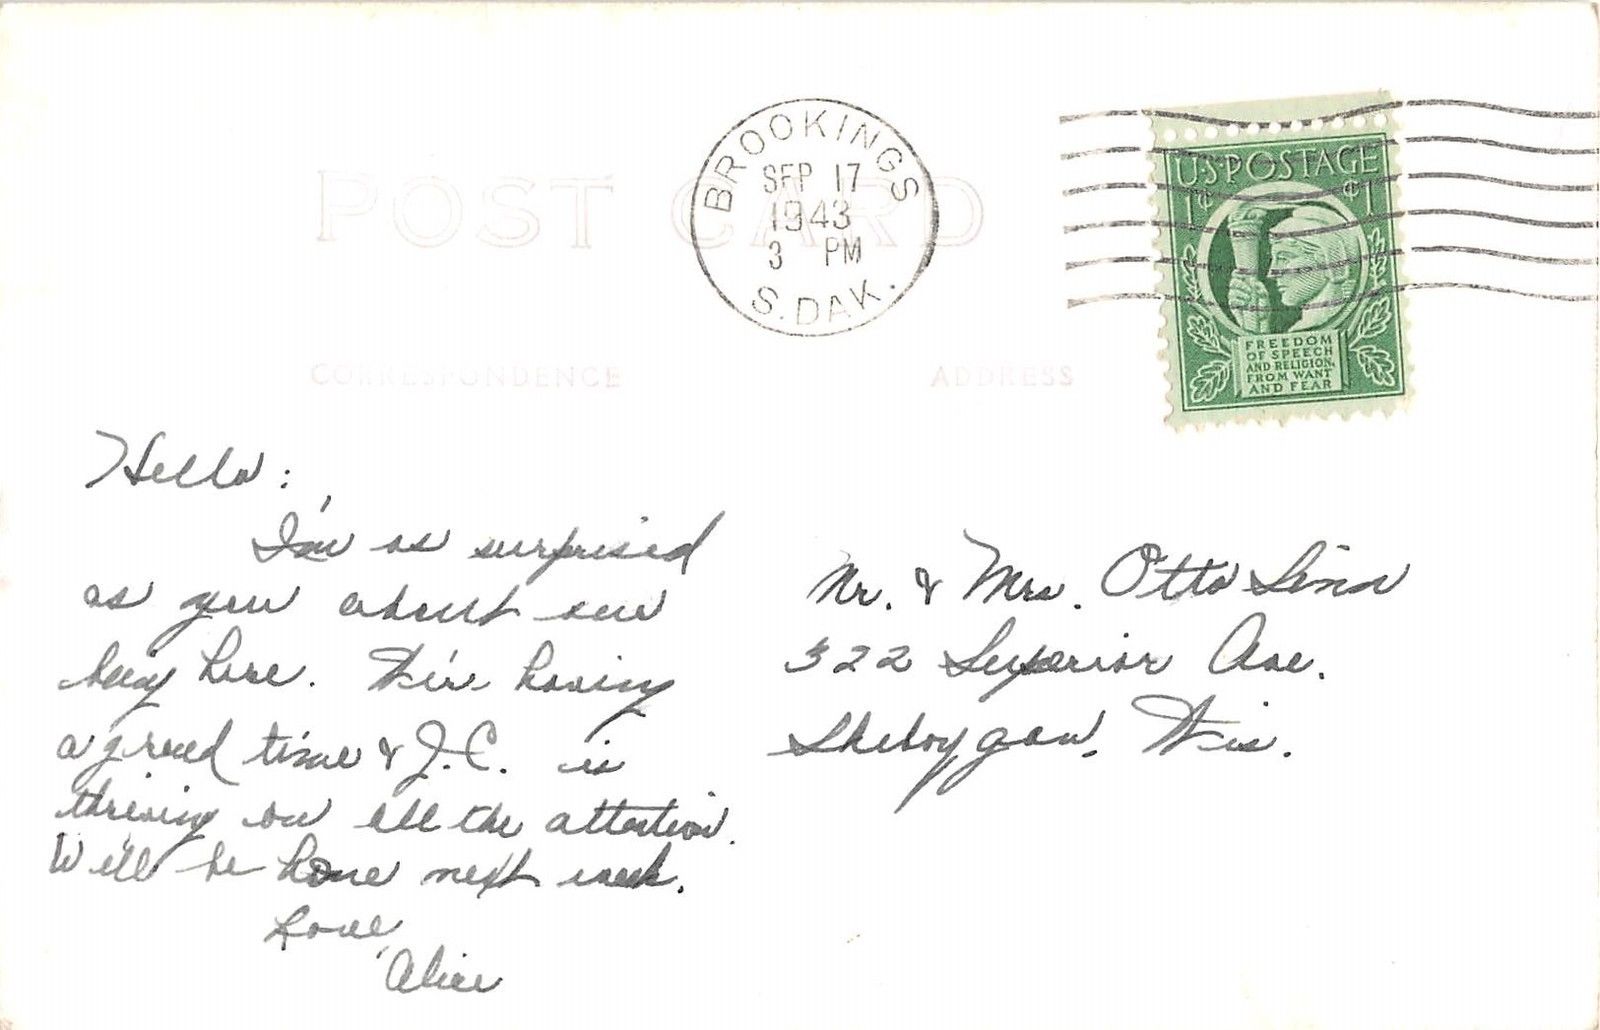 POST CARD
BROOKINGS
SEP 17
1943
3 PM
S. DAK.
U.S. POSTAGE
1¢ ¢1
FREEDOM
OF SPEECH
AND RELIGION,
FROM WANT
AND FEAR
CORRESPONDENCE
ADDRESS
Hello:
I'm as surprised
as you about our
being here. We're having
a good time & J.C. is
thriving on all the attention.
We'll be home next week.
Love,
Alice
Mr. & Mrs. Otto
322 Superior Ave.
Sheboygan, Wis.